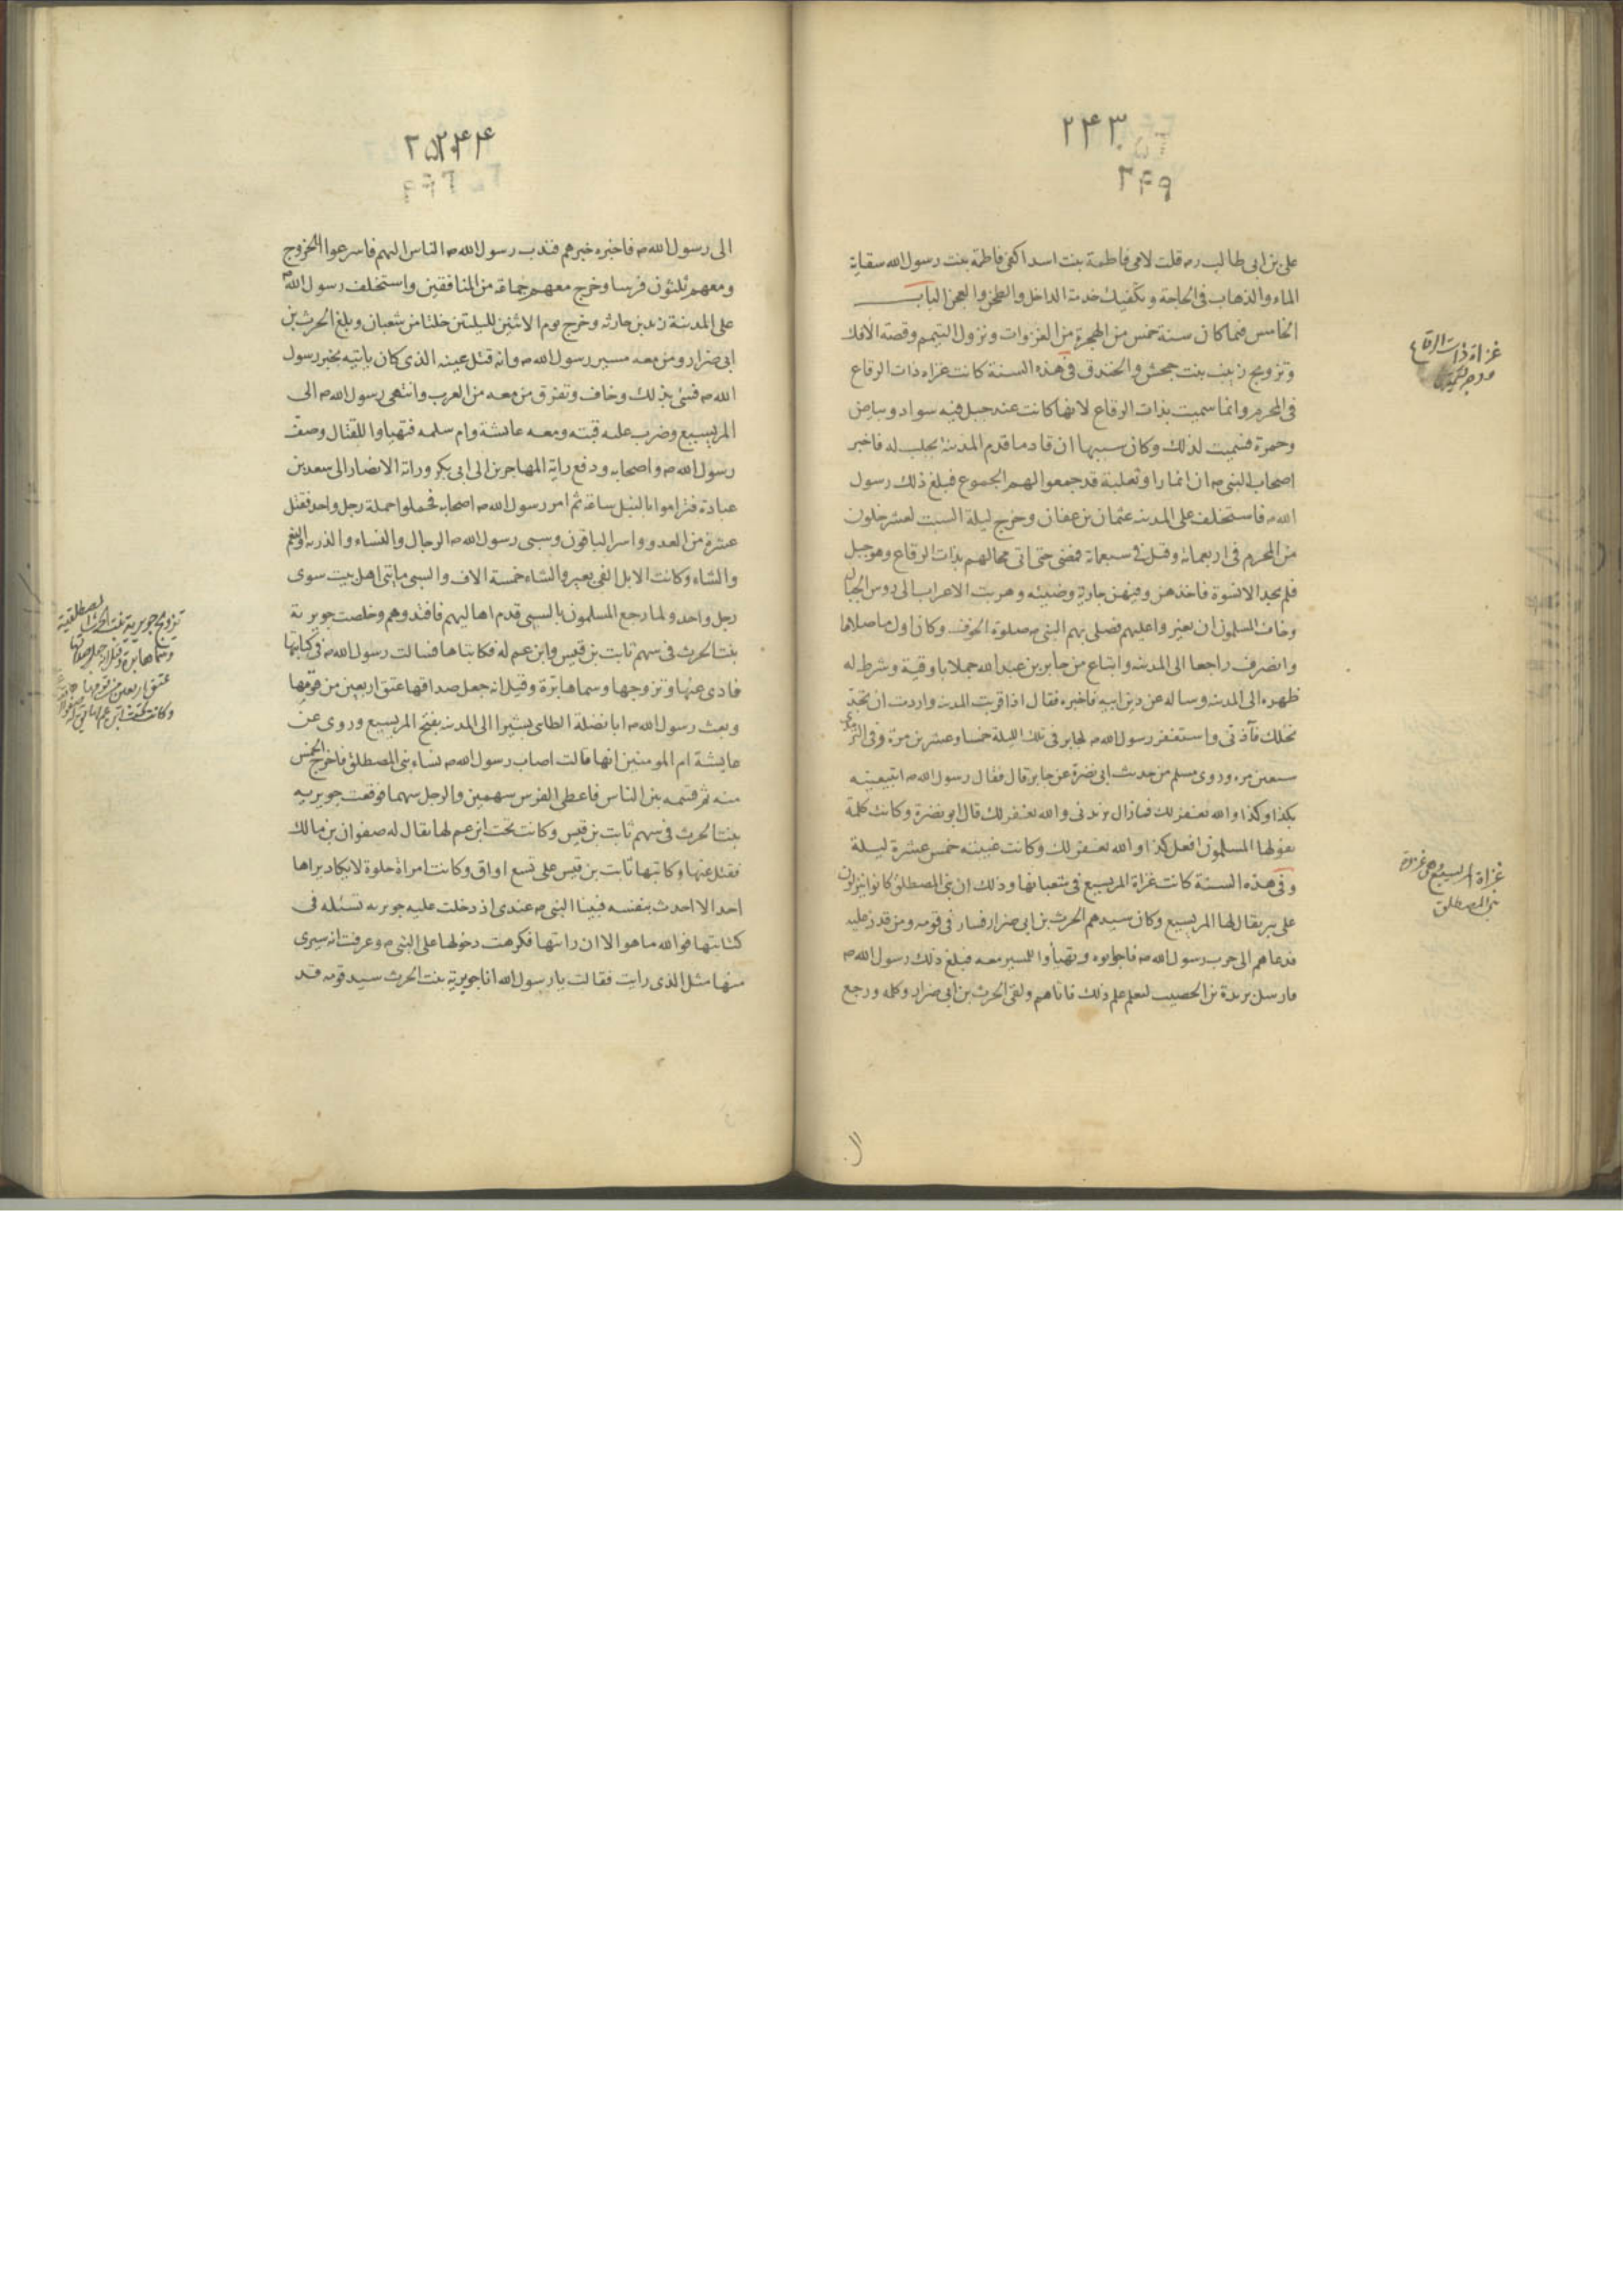 ٢٤٣
٢٤٩
على بن ابى طالب رہ قلت لامى فاطمة بنت اسد اكفى فاطمة بنت رسول الله سقاية
الماء والذهاب فى الحاجة وتكفيك خدمة الداخل والطحن والعجن الباب
الخامس فيما كان سنة خمس من الهجرة من الغزوات ونزول التيمم وقصة الافك
وتزويج زينب بنت جحش والخندق فى هذه السنة كانت غزاه ذات الرقاع
فى المحرم وانما سميت بذات الرقاع لانها كانت عند جبل فيه سواد وبياض
وحمرة فسميت لذلك وكان سببها ان قادما قدم المدينة بجلب له فاخبر
اصحاب النبى ص ان انمارا وثعلبة قد جمعوا لهم الجموع فبلغ ذلك رسول
الله ص فاستخلف على المدينه عثمان بن عفان وخرج ليلة السبت لعشر خلون
من المحرم فى اربعمائة وقيل فى سبعمائة فمضى حتى اتى محالهم بذات الرقاع وهو جبل
فلم يجد الا نسوة فاخذهن وفيهن جارية وضيئه وهربت الاعراب الى روس الجبال
وخاف المسلمون ان يغيروا عليهم فصلى بهم النبى ص صلوة الخوف وكان اول ما صلاها
وانصرف راجعا الى المدينه وابتاع من جابر بن عبد الله جملا باوقية وشرط له
ظهره الى المدينه وساله عن دين ابيه فاخبره فقال اذا قربت المدينه واردت ان تجذ
نخلك فآذنى واستغفر رسول الله ص لجابر فى تلك الليلة خمسا وعشرين مرة وفى الترمذى
سبعين مره وروى مسلم من حديث ابى نضرة عن جابر قال فقال رسول الله ص اتبيعنيه
بكذا وكذا والله يغفر لك فمازال يزيدنى والله يغفر لك قال ابو نضرة وكانت كلمة
يقولها المسلمون افعل كذا والله يغفر لك وكانت غيبته خمس عشرة ليلة
وفى هذه السنة كانت غزاة المريسيع فى شعبانها وذلك ان بنى المصطلق كانوا ينزلون
على بئر يقال لها المريسيع وكان سيدهم الحرث بن ابى ضرار فسار فى قومه ومن قدر عليه
فدعاهم الى حرب رسول الله ص فاجابوه وتهيأوا للمسير معه فبلغ ذلك رسول الله ص
فارسل بريدة بن الحصيب ليعلم علم ذلك فاتاهم ولقى الحرث بن ابى ضرار وكلمه ورجع
غزاة ذات الرقاع
غزاة المريسيع وهى غزوة
بنى المصطلق
٢٤٤
الى رسول الله ص فاخبره خبرهم فندب رسول الله ص الناس اليهم فاسرعوا الخروج
ومعهم ثلثون فرسا وخرج معهم جماعة من المنافقين واستخلف رسول الله ص
على المدينة زيد بن حارثه وخرج يوم الاثنين لليلتين خلتا من شعبان وبلغ الحرث بن
ابى ضرار ومن معه مسير رسول الله ص وانه قتل عينه الذى كان ياتيه بخبر رسول
الله ص فسئ بذلك وخاف وتفرق من معه من العرب وانتهى رسول الله ص الى
المريسيع وضرب عليه قبته ومعه عايشة وام سلمه فتهياوا للقتال وصف
رسول الله ص واصحابه ودفع راية المهاجرين الى ابى بكر وراية الانصار الى سعد بن
عبادة فتراموا بالنبل ساعة ثم امر رسول الله ص اصحابه فحملوا حملة رجل واحد فقتل
عشرة من العدو واسر الباقون وسبى رسول الله ص الرجال والنساء والذريه والنعم
والشاء وكانت الابل الفى بعير والشاء خمسة الاف والسبى مايتى اهل بيت سوى
رجل واحد ولما رجع المسلمون بالسبى قدم اهاليهم فافتدوهم وخلصت جويرية
بنت الحرث فى سهم ثابت بن قيس وابن عم له فكاتباها فسالت رسول الله ص فى كتابتها
فادى عنها وتزوجها وسماها برّة وقيل انه جعل صداقها عتق اربعين من قومها
وبعث رسول الله ص ابا نضلة الطائى بشيرا الى المدينه بفتح المريسيع وروى عن
عايشة ام المومنين انها قالت اصاب رسول الله ص نساء بنى المصطلق فاخرج الخمس
منه ثم قسمه بين الناس فاعطى الفرس سهمين والرجل سهما فوقعت جويريه
بنت الحرث فى سهم ثابت بن قيس وكانت تحت ابن عم لها يقال له صفوان بن مالك
فقتل عنها وكاتبها ثابت بن قيس على تسع اواق وكانت امراة حلوة لا يكاد يراها
احد الا اخذت بنفسه فبينا النبى ص عندى اذ دخلت عليه جويريه تسئله فى
كتابتها فوالله ما هو الا ان رايتها فكرهت دخولها على النبى ص وعرفت انه سيرى
منها مثل الذى رايت فقالت يا رسول الله انا جويرية بنت الحرث سيد قومه قد
تزويج جويرية بنت الحرث المصطلقية
عتق اربعين من قومها